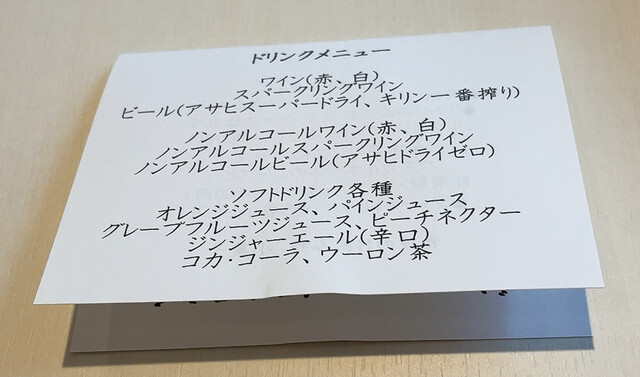 ドリンクメニュー
ワイン(赤、白)
スパークリングワイン
ビール(アサヒスーパードライ、キリン一番搾り)
ノンアルコールワイン(赤、白)
ノンアルコールスパークリングワイン
ノンアルコールビール(アサヒドライゼロ)
ソフトドリンク各種
オレンジジュース、パインジュース
グレープフルーツジュース、ピーチネクター
ジンジャーエール(辛口)
コカ・コーラ、ウーロン茶